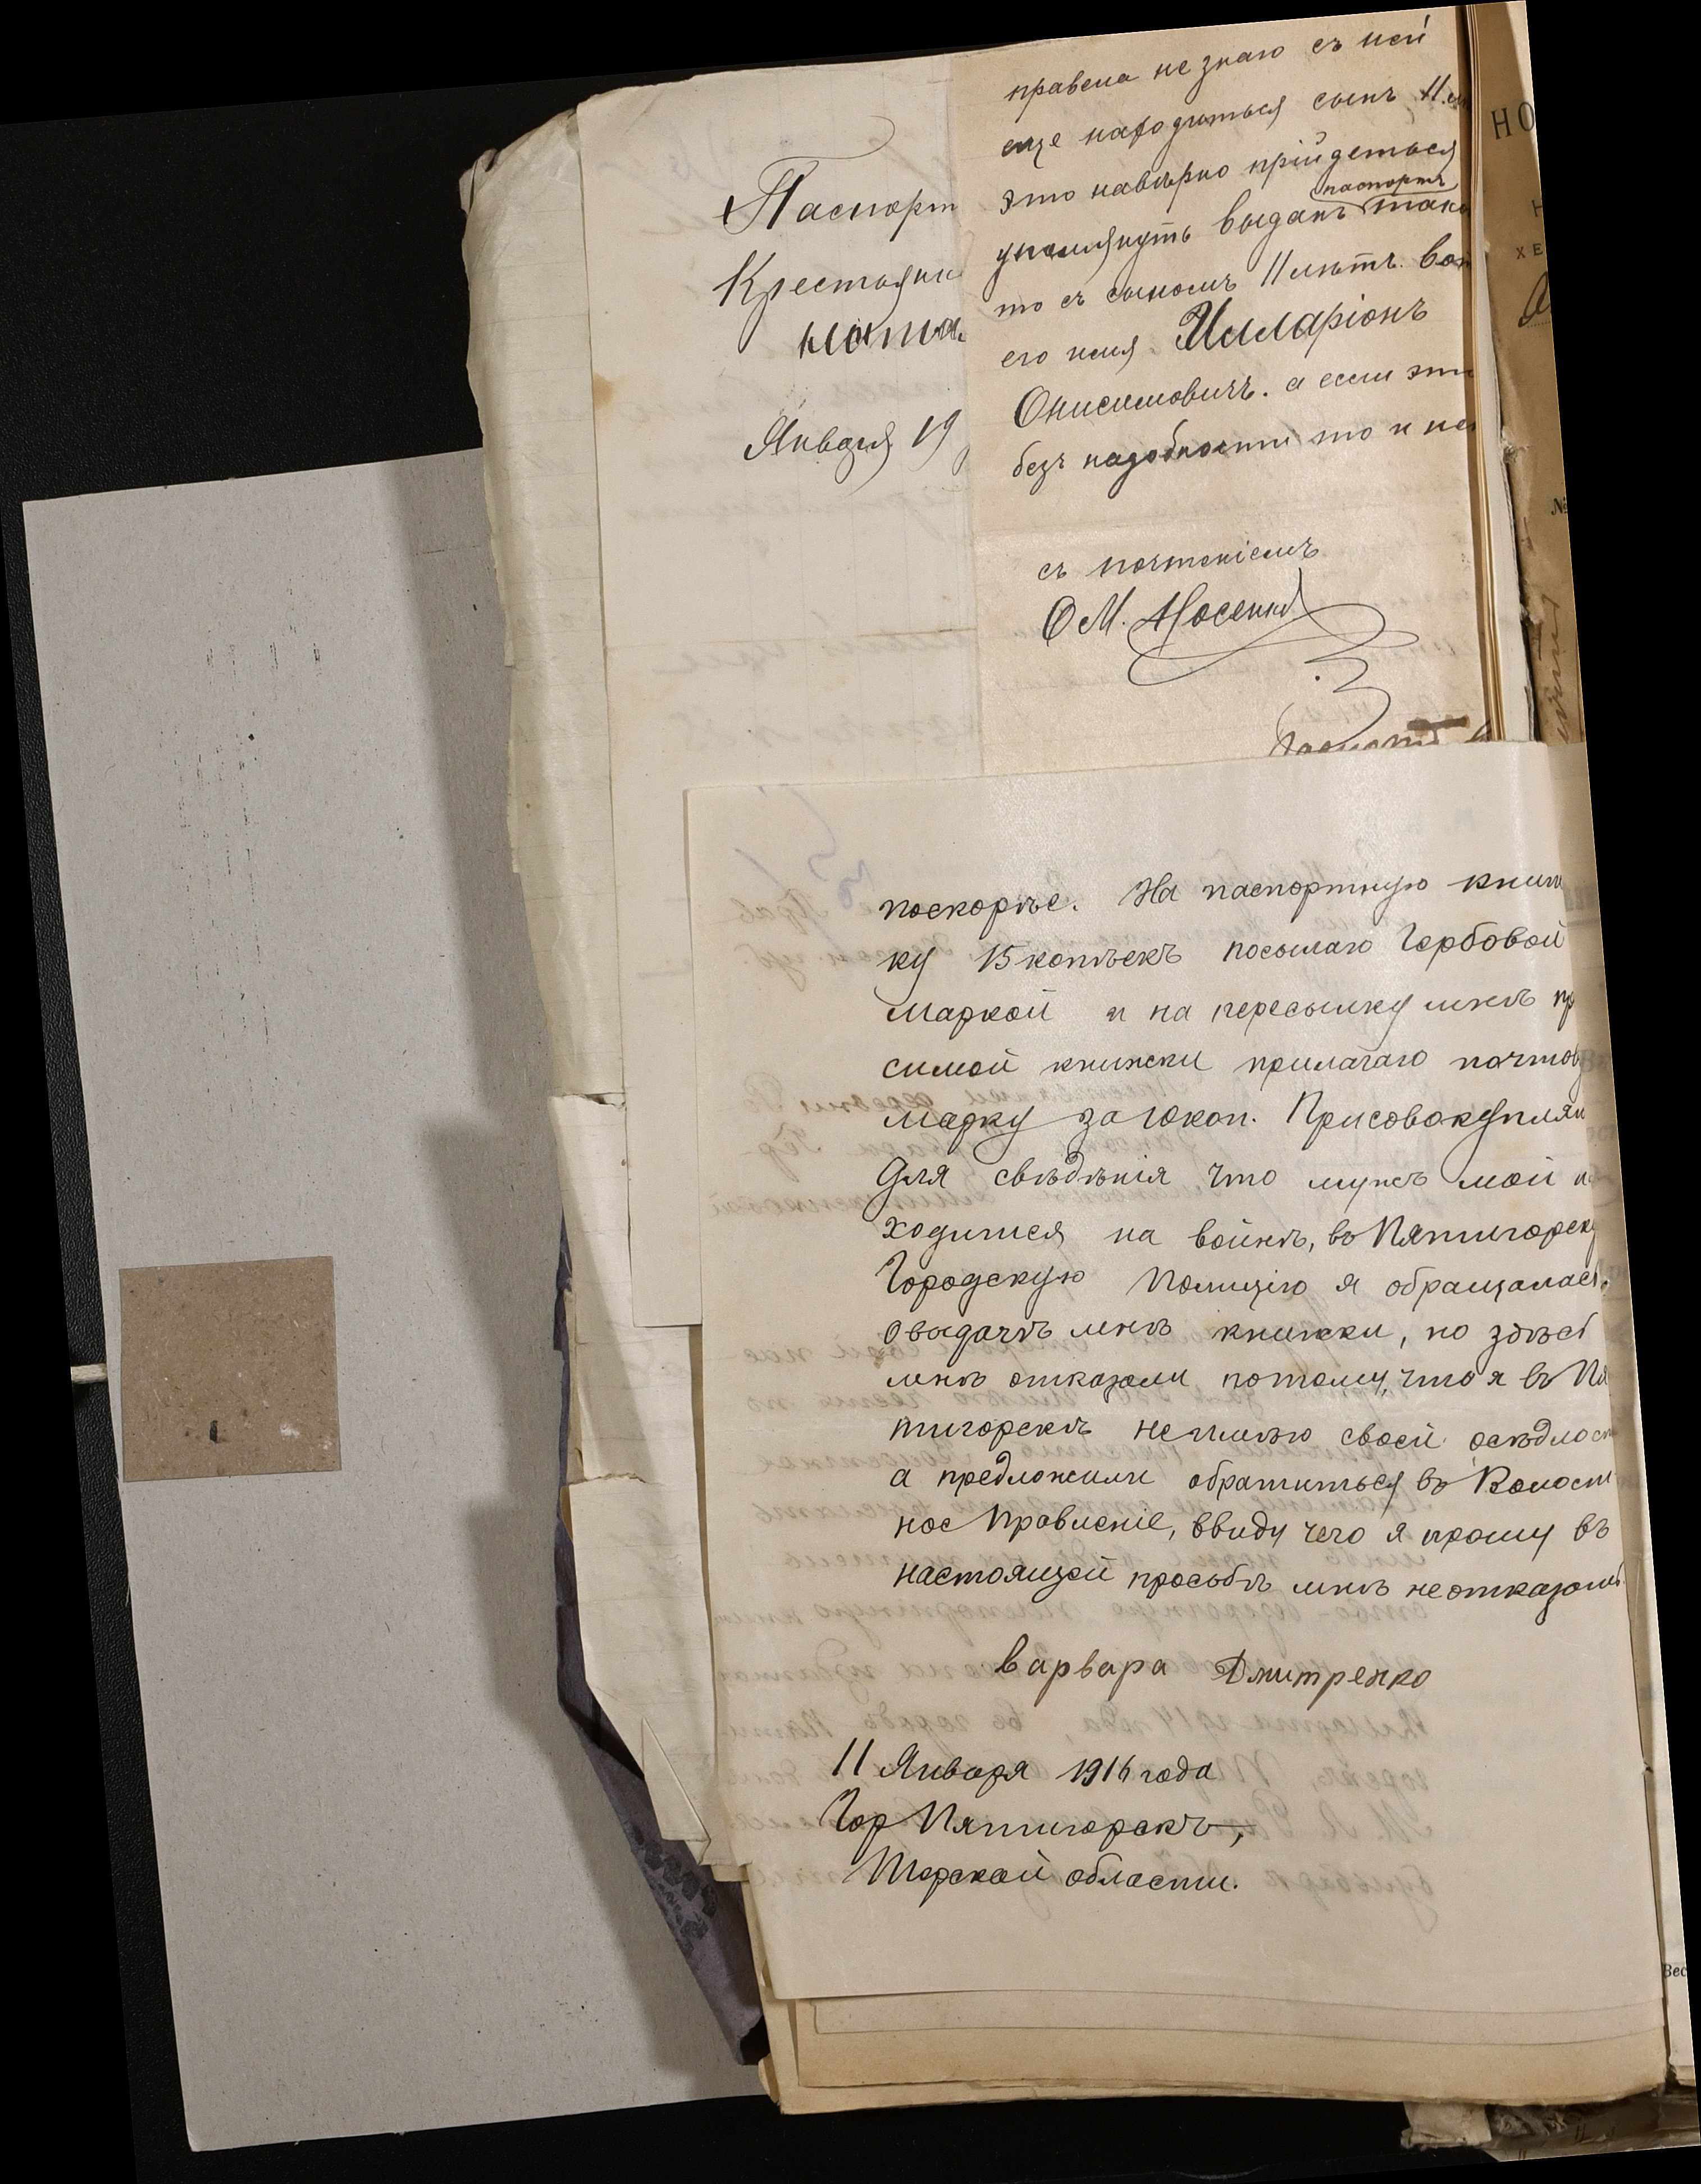 Паспорт
Крестьян
Января 19
правела не знаю съ ней
еще находиться сынъ 11
это навѣрно прійдеться
паспортъ
упомянуть выданъ
то съ сыномъ 11 лѣтъ. вот
его имя Илларіонъ
Онисимовичъ. а если эт
безъ надобности то и не
съ почтеніемъ
О М. Носенко
поскорѣе. На паспортную книж
ку 15 копѣекъ посылаю Гербовой
маркой и на пересылку мнѣ пр
симой книжки прилагаю почтов
марку за 10 коп. Присовокупляю
для свѣдѣнія что мужъ мой н
ходится на войнѣ, въ Пятигорск
Городскую Полицію я обращалась
о выдачѣ мнѣ книжки, но здѣсь
мнѣ отказали потому, что я въ Пя
тигорскѣ неимѣю своей осѣдлост
а предложили обратиться въ Волост
ное Правленіе, ввиду чего я прошу въ
настоящей просьбѣ мнѣ не отказать.
Варвара Дмитренко
11 Января 1916 года
Гор Пятигорскъ,
Терской области.
НО
ХЕ
№
Вес